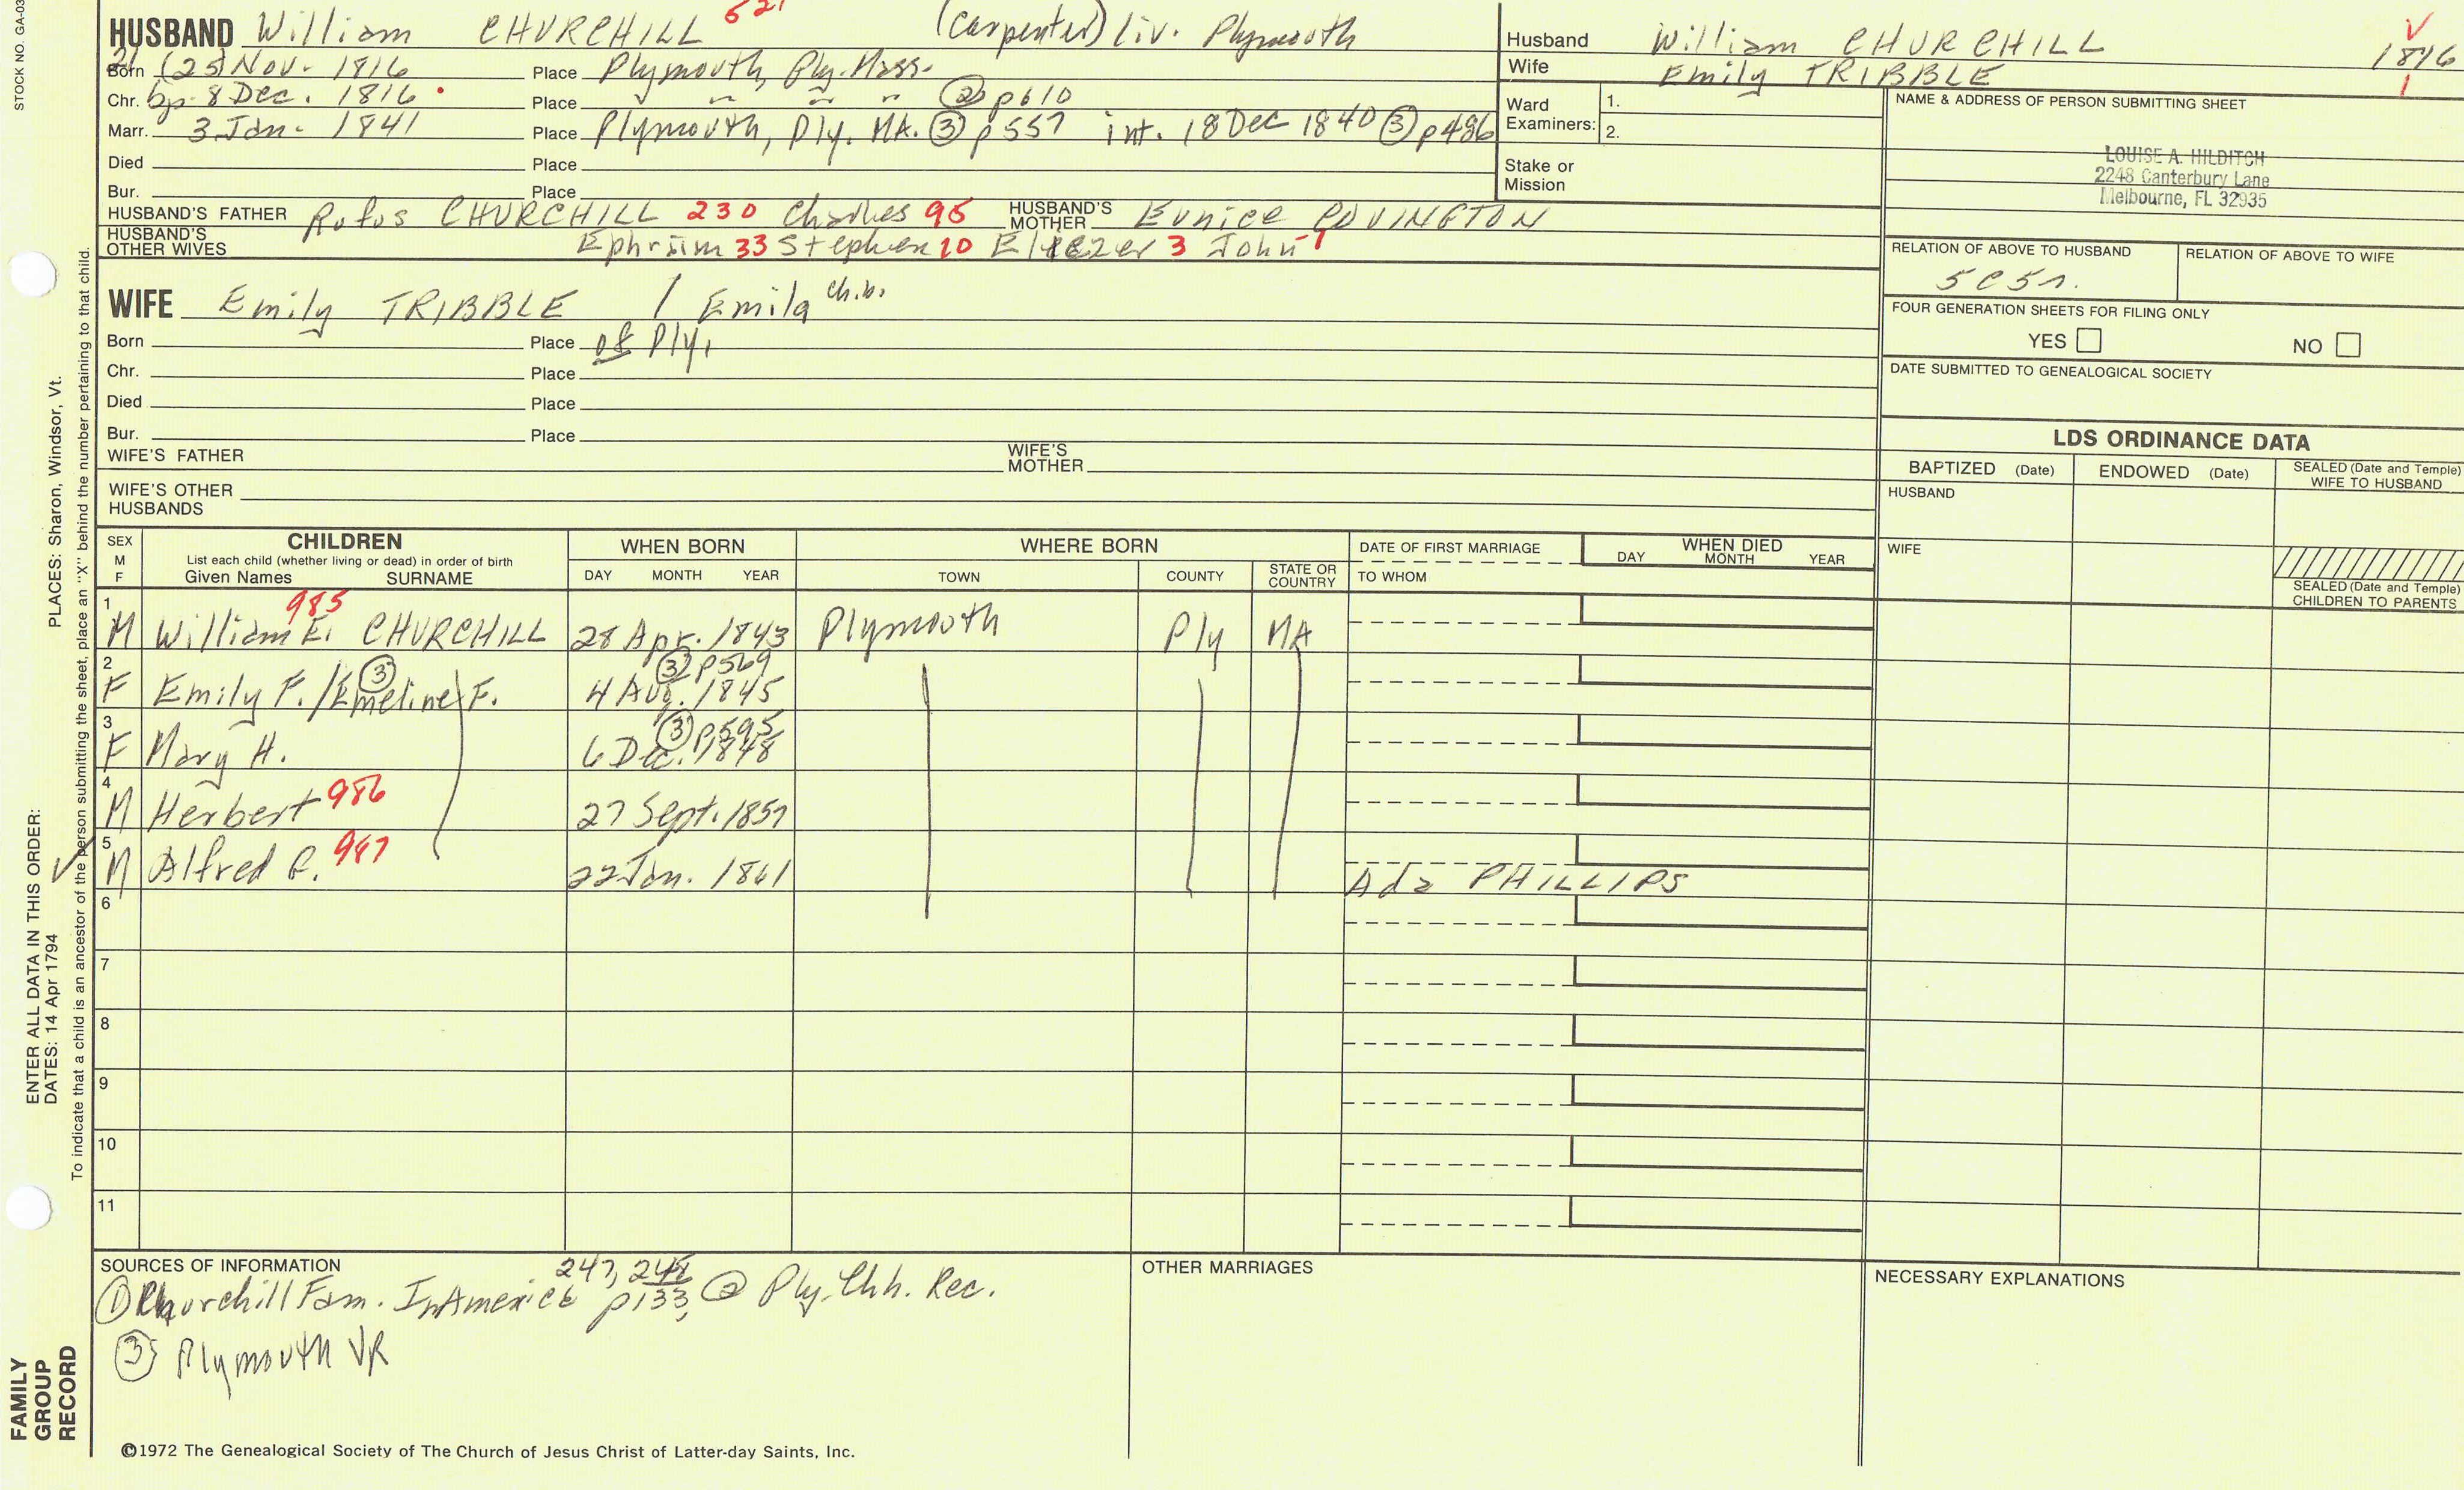 STOCK NO. GA-03
HUSBAND William CHURCHILL (carpenter) liv. Plymouth
Born 21 (25) Nov. 1816 Place Plymouth, Ply. Mass.
Chr. bp. 8 Dec. 1816 Place " " " ② p610
Marr. 3 Jan. 1841 Place Plymouth, Ply. MA. ③ p557 int. 18 Dec 1840 ③ p486
Died Place
Bur. Place
HUSBAND'S FATHER Rufus CHURCHILL 230 Charles 96 HUSBAND'S MOTHER Eunice COVINGTON
HUSBAND'S OTHER WIVES Ephraim 33 Stephen 10 Eliezer 3 John 1
WIFE Emily TRIBBLE / Emila ch.b.
Born Place of Ply.
Chr. Place
Died Place
Bur. Place
WIFE'S FATHER WIFE'S MOTHER
WIFE'S OTHER HUSBANDS
Husband William CHURCHILL 1816
Wife Emily TRIBBLE
Ward Examiners: 1.
2.
Stake or Mission
NAME & ADDRESS OF PERSON SUBMITTING SHEET
LOUISE A. HILDITCH
2248 Canterbury Lane
Melbourne, FL 32935
RELATION OF ABOVE TO HUSBAND RELATION OF ABOVE TO WIFE
5C5r.
FOUR GENERATION SHEETS FOR FILING ONLY
YES NO
DATE SUBMITTED TO GENEALOGICAL SOCIETY
LDS ORDINANCE DATA
BAPTIZED (Date) ENDOWED (Date) SEALED (Date and Temple) WIFE TO HUSBAND
HUSBAND
WIFE
SEALED (Date and Temple) CHILDREN TO PARENTS
SEX M F CHILDREN List each child (whether living or dead) in order of birth Given Names SURNAME
WHEN BORN DAY MONTH YEAR
WHERE BORN TOWN COUNTY STATE OR COUNTRY
DATE OF FIRST MARRIAGE TO WHOM
WHEN DIED DAY MONTH YEAR
1 M William E. CHURCHILL 985 28 Apr. 1843 Plymouth Ply MA
2 F Emily F. / Emeline F. ③ 4 Aug. 1845 ③ p569
3 F Mary H. 6 Dec. 1848 ③ p595
4 M Herbert 986 27 Sept. 1857
5 M Alfred R. 987 22 Jan. 1861 Ada PHILLIPS
6
7
8
9
10
11
SOURCES OF INFORMATION
① Churchill Fam. In America p133, 247, 248 ② Ply. Chh. Rec.
③ Plymouth VR
OTHER MARRIAGES
NECESSARY EXPLANATIONS
©1972 The Genealogical Society of The Church of Jesus Christ of Latter-day Saints, Inc.
FAMILY GROUP RECORD
ENTER ALL DATA IN THIS ORDER:
DATES: 14 Apr 1794 PLACES: Sharon, Windsor, Vt.
To indicate that a child is an ancestor of the person submitting the sheet, place an "X" behind the number pertaining to that child.